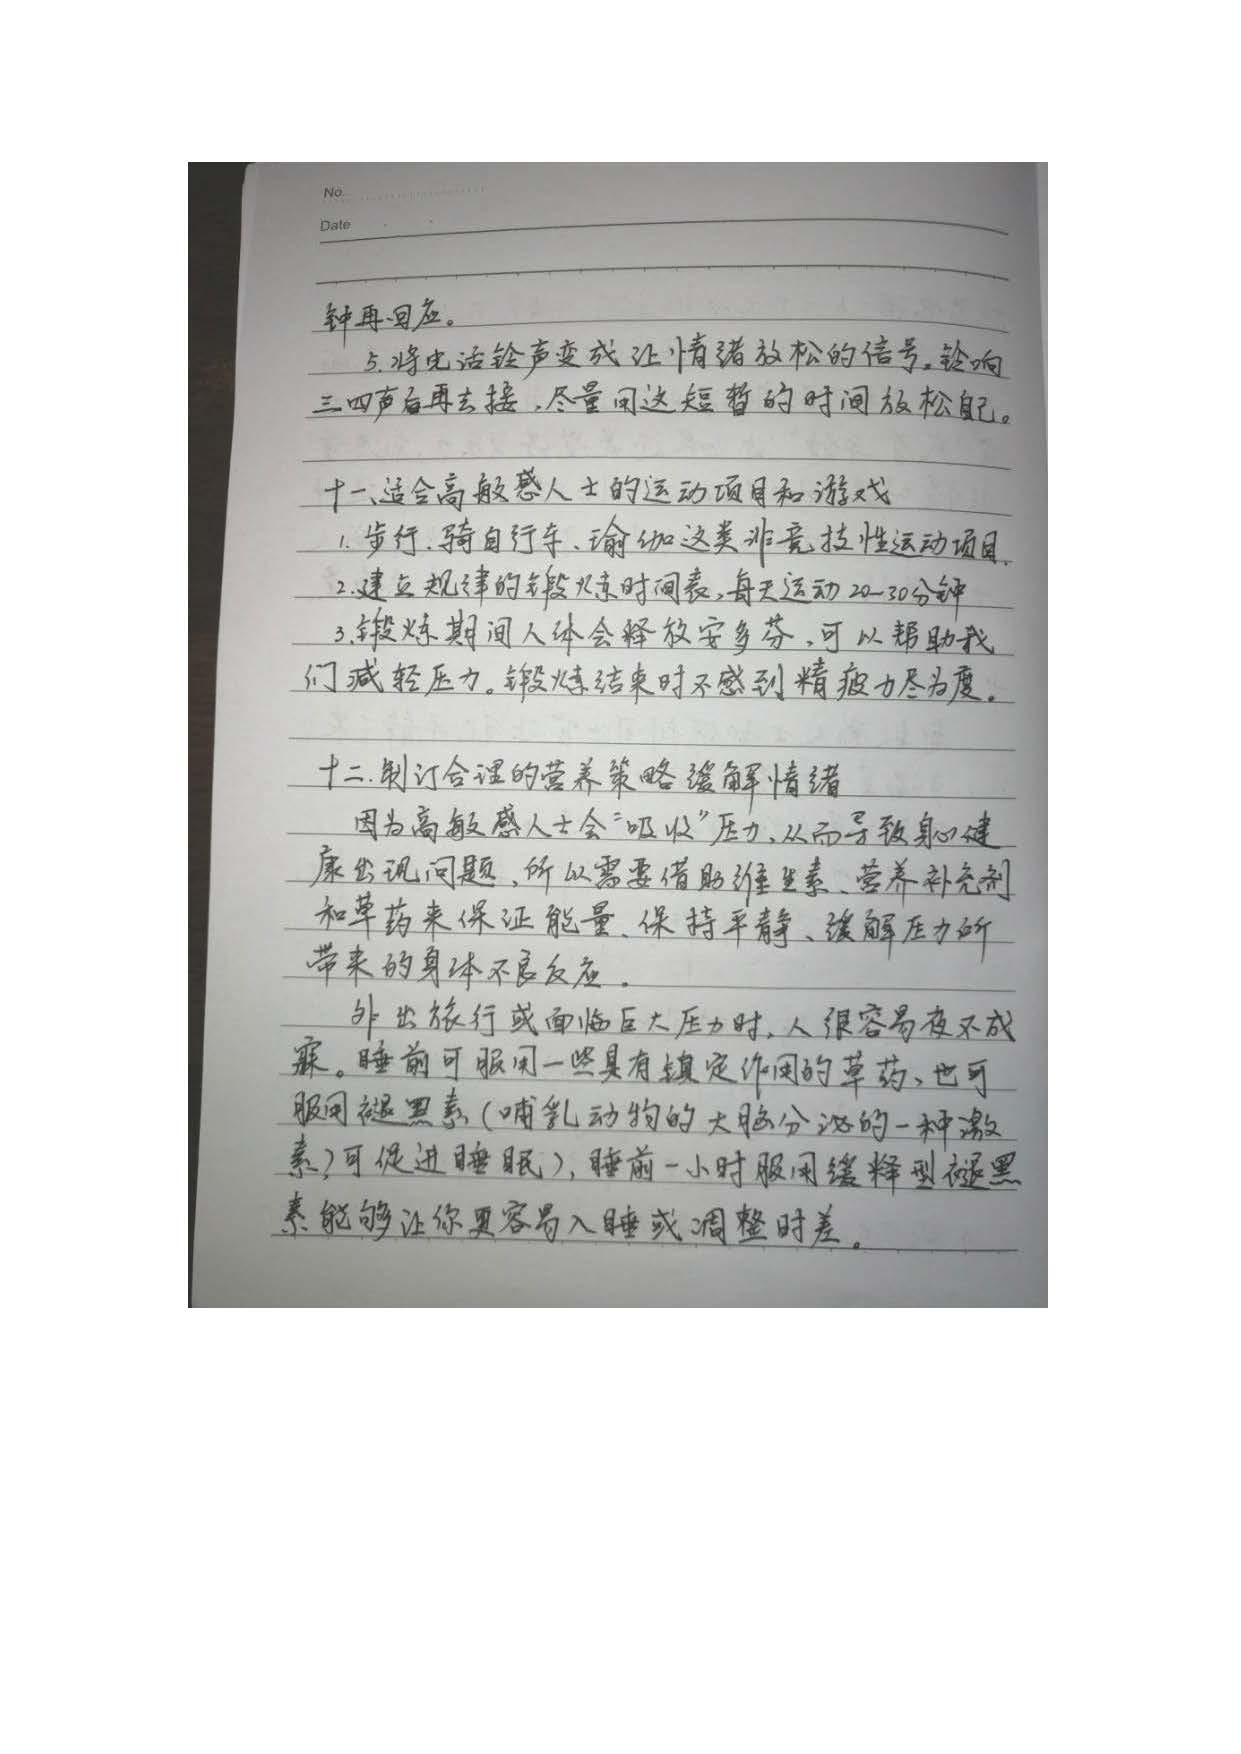 No.
Date
钟再回应。
5.将电话铃声变成让情绪放松的信号。铃响
三四声后再去接,尽量用这短暂的时间放松自己。
十一、适合高敏感人士的运动项目和游戏
1.步行、骑自行车、瑜伽这类非竞技性运动项目.
2.建立规律的锻炼时间表,每天运动20—30分钟
3.锻炼期间人体会释放安多芬,可以帮助我
们减轻压力。锻炼结束时不感到精疲力尽为度。
十二.制订合理的营养策略缓解情绪
因为高敏感人士会“吸收”压力,从而导致身心健
康出现问题,所以需要借助维生素、营养补充剂
和草药来保证能量、保持平静、缓解压力所
带来的身体不良反应.
外出旅行或面临巨大压力时,人很容易夜不成
寐。睡前可服用一些具有镇定作用的草药,也可
服用褪黑素(哺乳动物的大脑分泌的一种激
素,可促进睡眠),睡前一小时服用缓释型褪黑
素能够让你更容易入睡或调整时差。